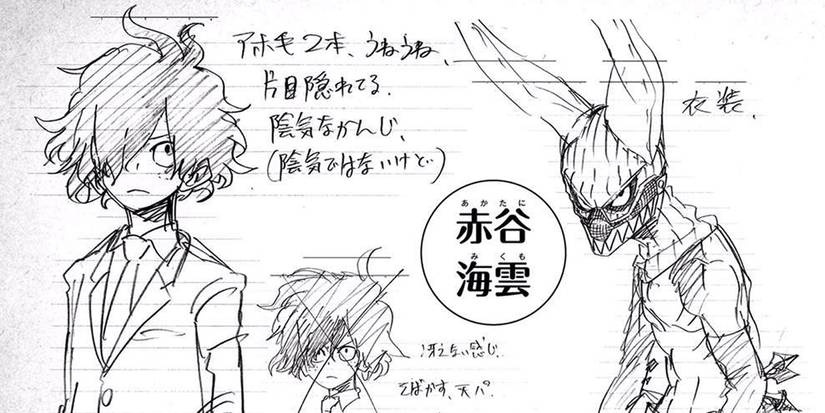 アホ毛2本、うねうね、
片目隠れてる.
陰気なかんじ、
(陰気ではないけど)
衣装.
あかたに
赤谷
みくも
海雲
冴えない感じ.
そばかす、天パ.